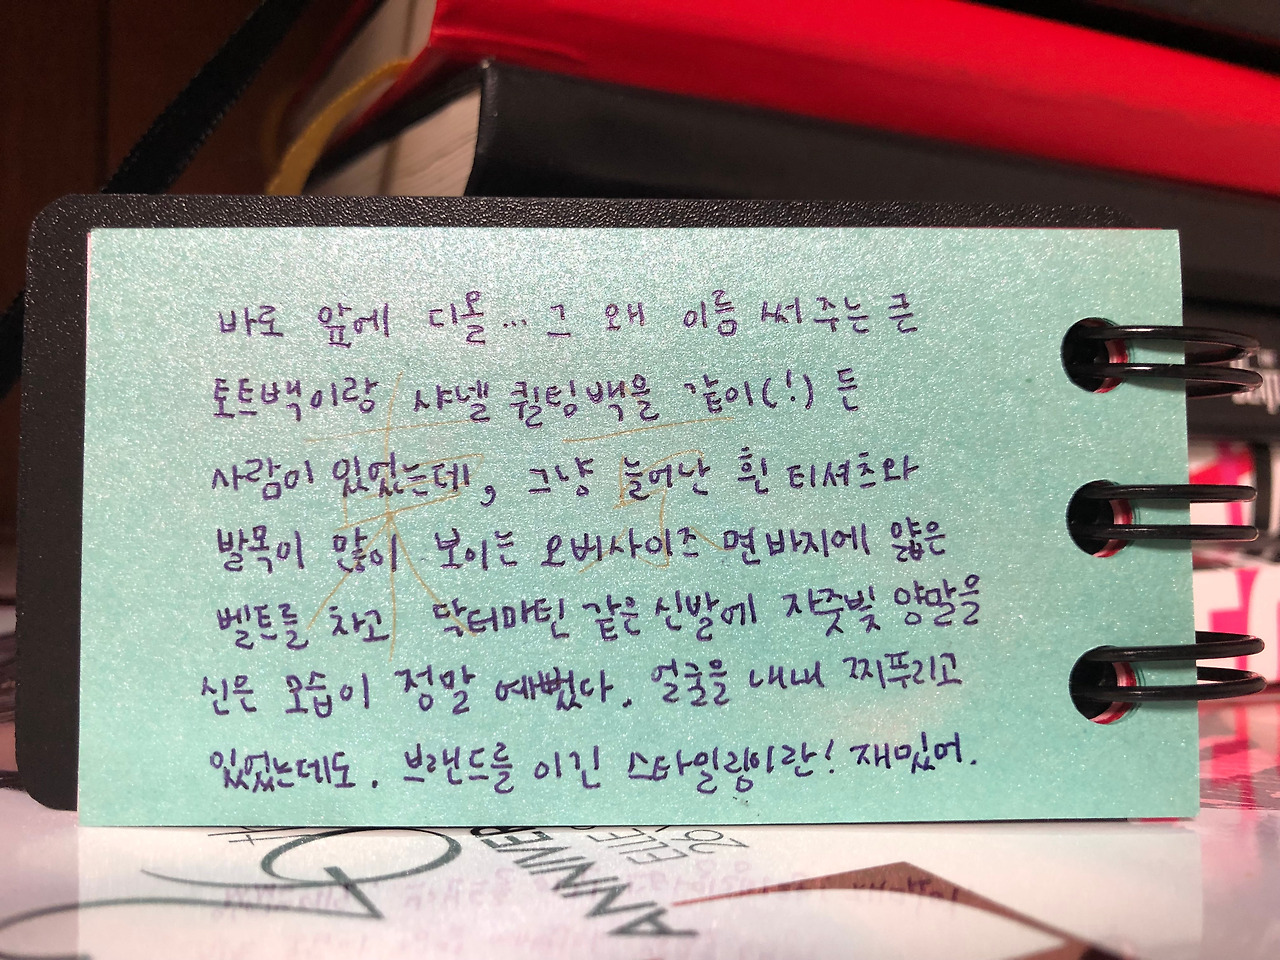 바로 앞에 디올... 그 왜 이름 써 주는 큰
토트백이랑 샤넬 퀼팅백을 같이(!) 든
사람이 있었는데, 그냥 늘어난 흰 티셔츠와
발목이 많이 보이는 오버사이즈 면바지에 얇은
벨트를 차고 닥터마틴 같은 신발에 자줏빛 양말을
신은 모습이 정말 예뻤다. 얼굴을 내내 찌푸리고
있었는데도. 브랜드를 이긴 스타일링이란! 재밌어.
ANNIVER
ELLE